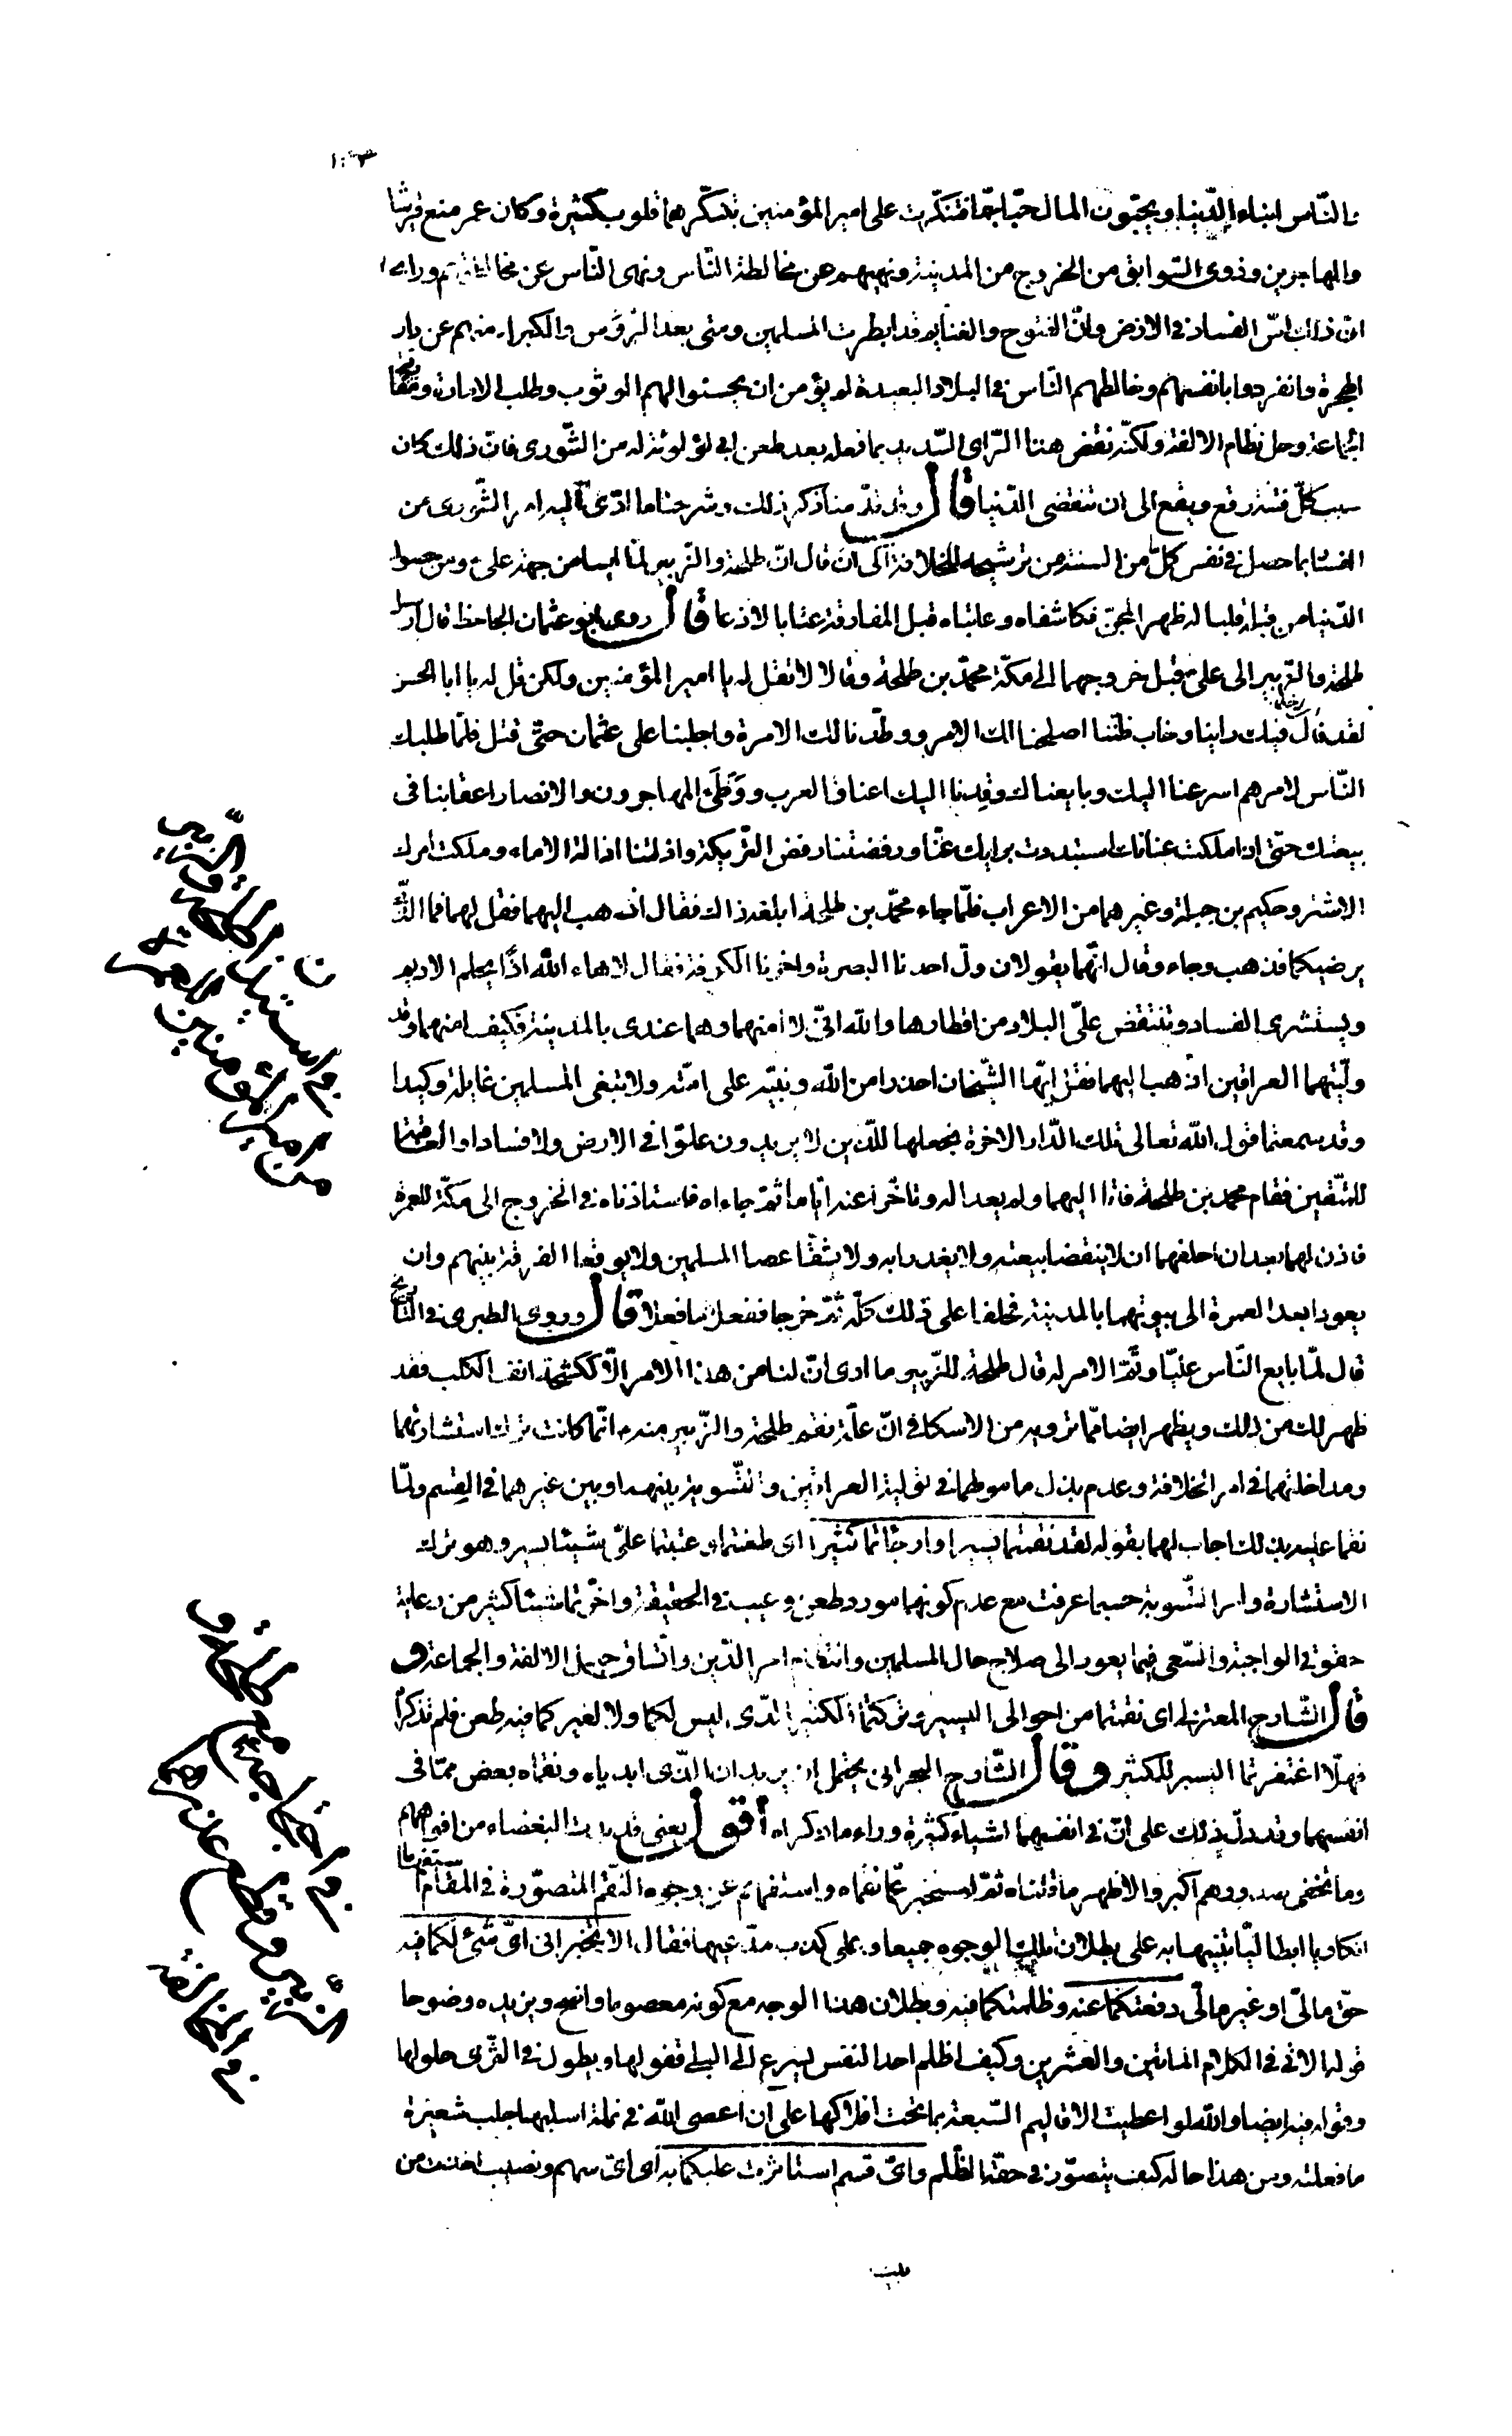 ١٠٣
الناس ابناء الدّنيا ويحبّون المال حبّا جمّا فتنكّرت على امير المؤمنين بتنكّرهما قلوب كثيرة وكان عمر منع قريشا
والمهاجرين وذوى السّوابق من الخروج من المدينة ونهيهم عن مخالطة النّاس ونهى النّاس عن مخالطتهم ورأى
انّ ذلك اسّ الفساد في الارض وانّ الفتوح والغنايم قد ابطرت المسلمين ومتى بعد الرّؤس والكبراء منهم عن دار
الهجرة وانفردوا بانفسهم وخالطهم النّاس في البلاد البعيدة لم يؤمن ان يحسنوا لهم الوثوب وطلب الامارة ومفارقة
الجماعة وحل نظام الالفة ولكنّه نقض هذا الرّاى السّديد بما فعله بعد طعن ابي لؤلؤة له من الشّورى فانّ ذلك كان
سبب كلّ فتنة وقع ويقع الى ان تنقضى الدّنيا قال وقد قدّمنا ذكر ذلك وشرحنا ما ادّى اليه امر الشّورى من
الفساد بما حصل في نفس كلّ من الستة من ترشيحه للخلافة الى ان قال انّ طلحة والزّبير لمّا ايسا من جهة على ومن حصول
الدّنيا من قبله قلبا له ظهر المجنّ فكاشفاه وعاتباه قبل المفارقة عتابا لاذعا قال روى ابو عثمان الجاحظ قال ارسل
طلحة والزّبير الى على قبل خروجهما الى مكّة محمّد بن طلحة وقالا لا تقل له يا امير المؤمنين ولكن قل له يا ابا الحسن
لقد فال فيك راينا وخاب ظنّنا اصلحنا لك الامر ووطّدنا لك الامرة واجلبنا على عثمان حتّى قتل فلمّا طلبك
النّاس لامرهم اسرعنا اليك وبايعناك وقدنا اليك اعناق العرب ووَطَىء المهاجرون والانصار اعقابنا في
بيعتك حتّى اذا ملكت عنانك استبددت برايك عنّا ورفضتنا رفض التّريكة واذلتنا اذالة الاماء وملكت امرك
الاشتر وحكيم بن جبلة وغيرهما من الاعراب فلمّا جاء محمّد بن طلحة ابلغه ذاك فقال اذهب اليهما فقل لهما فما الّذى
يرضيكما فذهب وجاء وقال انّهما يقولان ولّ احدنا البصرة واخرنا الكوفة فقال لاهاء الله اذًا يحلم الاديم
ويستشرى الفساد وتنتقض علىّ البلاد من اقطارها والله انّى لا امنهما وهما عندى بالمدينة فكيف امنهما وقد
ولّيتهما العراقين اذهب اليهما فقل ايّها الشّيخان احذرا من الله ونبيّه على امّته ولا تبغى المسلمين غايلة وكيدا
وقد سمعتما قول الله تعالى تلك الدّار الاخرة نجعلها للّذين لا يريدون علوّا في الارض ولا فسادا والعاقبة
للمتّقين فقام محمّد بن طلحة فاتا اليهما ولم يعد اليه وتاخّرا عنه ايّاما ثمّ جاءاه فاستاذناه في الخروج الى مكّة للعمرة
فاذن لهما بعد ان احلفهما ان لا ينقضا بيعته ولا يغدرا به ولا يشقّا عصا المسلمين ولا يوقعا الفرقة بينهم وان
يعودا بعد العمرة الى بيوتهما بالمدينة فحلفا على ذلك كلّه ثمّ خرجا ففعلا ما فعلا قال وروى الطبرى في التّاريخ
قال لمّا بايع النّاس عليّا وتمّ الامر له قال طلحة للزّبير ما ارى انّ لنا من هذا الامر الّا ككشحة انف الكلب فقد
ظهر لك من ذلك ويظهر ايضا ممّا نرويه من الاسكافى انّ علّة نقم طلحة والزّبير منه انّما كانت ترك استشارتهما
ومداخلتهما في امر الخلافة وعدم بذل مامولهما في تولية العراقين والتّسوية بينهما وبين غيرهما في القسم ولمّا
نقما عليه بذلك اجاب لهما بقوله لقد نقمتما يسيرا وارجاتما كثيرا اى طعنتما وعتبتما علىّ شيئا يسيرا وهو ترك
الاستشارة وامر التّسوية حسبما عرفت مع عدم كونهما مورد طعن وعيب في الحقيقة واخّرتما شيئا كثيرا من رعاية
حقوقى الواجبة والسّعى فيما يعود الى صلاح حال المسلمين وانتظام امر الدّين واتّساق حبل الالفة والجماعة و
قال الشّارح المعتزلى اى نقمتما من احوالى اليسير وتركتما الكثير الّذى ليس لكما ولا لغيركما فيه طعن فلم تذكراه
فهلّا اغتفرتما اليسير للكثير وقال الشّارح البحرانى يحتمل ان يريد انّ الّذى ابدياه ونقماه بعض ممّا في
انفسهما وقد دلّ ذلك على انّ في انفسهما اشياء كثيرة وراء ما ذكراه أقول يعنى قد بدت البغضاء من افواههما
وما تخفى صدورهم اكبر والاظهر ما قلناه ثمّ استخبر عمّا نقماه واستفهام عن وجوه النّقم المتصوّرة في المقام استفهاما
انكاريا ابطاليّا تنبيها به على بطلان تلك الوجوه جميعا وعلى كذب مدّعيها فقال الا تخبرانى اىّ شىء لكما فيه
حقّ مالىّ او غير مالىّ دفعتكما عنه وظلمتكما فيه وبطلان هذا الوجه مع كونه معصوما واضح ويزيده وضوحا
قوله الاتى في الكلام المأتين والعشرين وكيف اظلم احدا لنفس يسرع الى البلى قفولها ويطول في الثّرى حلولها
وقوله فيه ايضا والله لو اعطيت الاقاليم السّبعة بما تحت افلاكها على ان اعصى الله في نملة اسلبها جلب شعيرة
ما فعلته ومن هذا حاله كيف يتصوّر في حقّه الظّلم واىّ قسم استاثرت عليكما به اى اىّ سهم ونصيب اخذت من
طلحة والزّبير